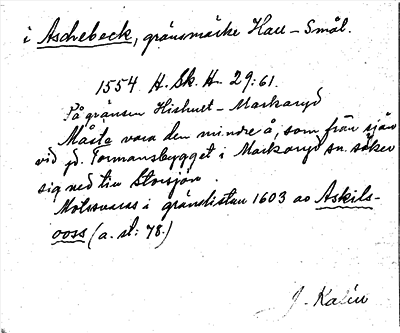 i Aschebeck, gränsmärke Hall-Smål.
1554 H. Sk. H. 29:61.
På gränsen Hishult - Markaryd
Måste vara den mindre å, som från sjön
vid gd. Tormansbygget i Markaryd sn. söker
sig ned till Storsjön.
Motsvaras i gränslistan 1603 av Askils-
ooss (a. st: 78.)
J. Kalén